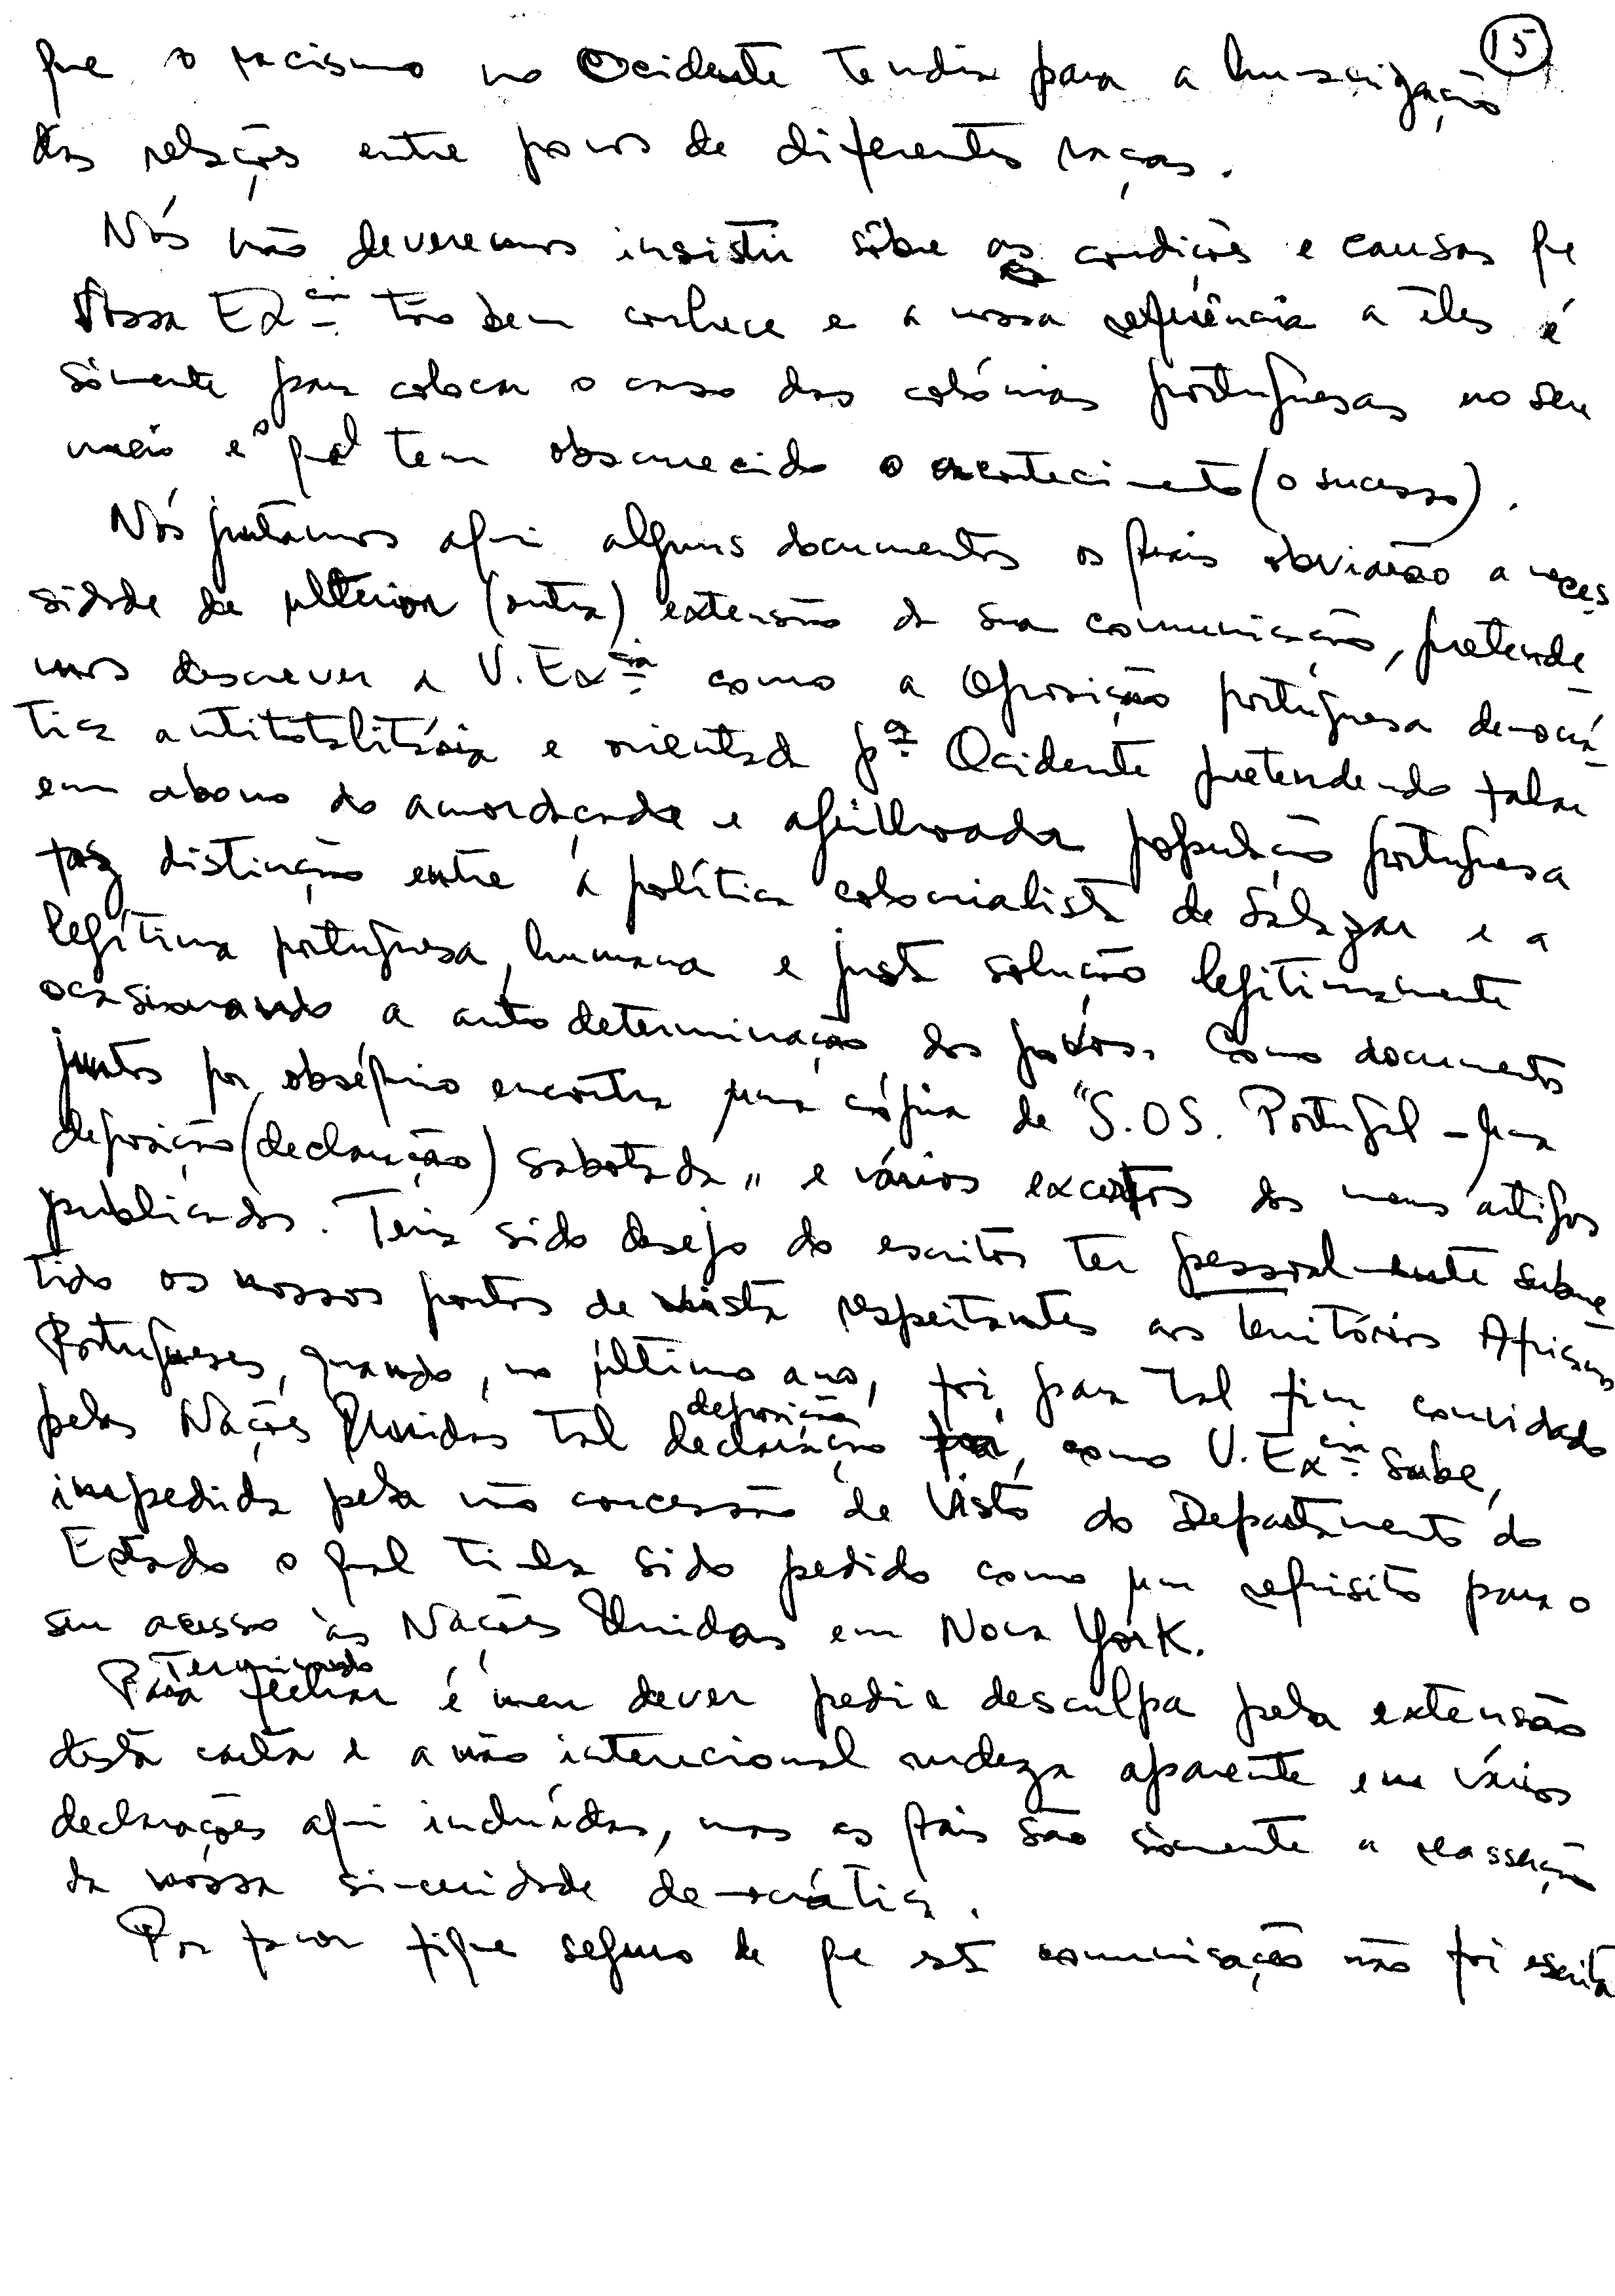 15
que o racismo no Ocidente tendia para a humanização
das relações entre povos de diferentes raças.
Nós não deveremos insistir sôbre as condições e causas que
Vossa Excia tão bem conhece e a nossa referência a êles é
sòmente para colocar o caso das colónias portuguesas no seu
meio e o qual tem obscurecido o acontecimento (o sucesso).
Nós juntamos aqui alguns documentos os quais obviarão a neces
sidade de ulterior (outra) extensão da sua comunicação, pretende
mos descrever a V. Excia como a Oposição portuguesa democrá-
tica antitotalitária e orientada pª Ocidente pretendendo falar
em abono do amordaçada e aguilhoada população portuguesa
faz distinção entre a política colonialista de Salazar e a
legítima portuguesa, humana e justa solução legitimamente
ocasionando a auto determinação dos povos. Como documentos
juntos por obséquio encontra uma cópia de "S.O.S. Portugal - uma
deposição (declaração) sabotada" e vários excertos dos meus artigos
publicados. Teria sido desejo do escritor ter pessoalmente subme
tido os nossos pontos de vista respeitantes aos territórios Africanos
Portugueses, quando, no último ano, foi para tal fim convidado
pelas Nações Unidas tal declaração foi, como V. Excia Sabe,
deposição
impedida pela não concessão de Visto do Departamento do
Estado o qual tinha sido pedido como um requisito para o
seu acesso às Nações Unidas em Nova York.
Terminando
Para fechar é meu dever pedir desculpa pela extensão
desta carta e a não intencional rudeza aparente em várias
declarações aqui incluídas, mas as quais são sòmente a reasserção
da nossa sinceridade democrática.
Por favor fique seguro de que esta comunicação não foi escrita